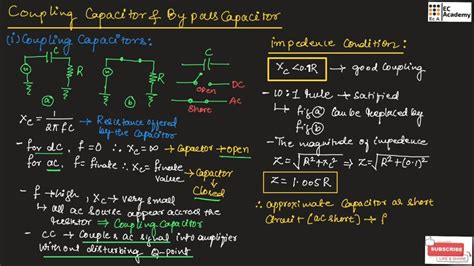 Coupling Capacitor & Bypass Capacitor
EC Academy
Ec A
(i) Coupling Capacitors:
C
R
R
C
open
DC
AC
Short
a
b
Xc = 1/2πfC → Resistance offered by the Capacitor
- for dc, f = 0 ∴ Xc = ∞ → Capacitor → open
for ac, f = finate ∴ Xc = finate value → Capacitor → Closed
- f → high, Xc → very small
↳ all ac source appear accross the resistor → Coupling Capacitor
- CC → Couples ac signal into amplifier without disturbing Q-point
impedence Condition:
Xc < 0.1R → good coupling
- 10:1 Rule → satisfied
↳ fig ⓐ can be replaced by fig ⓑ
- The magnitude of impedence
Z = √R² + Xc² ⇒ Z = √R² + (0.1)²
Z = 1.005R
∴ approximate Capacitor as short
Circuit (ac short) →
SUBSCRIBE
LIKE & SHARE